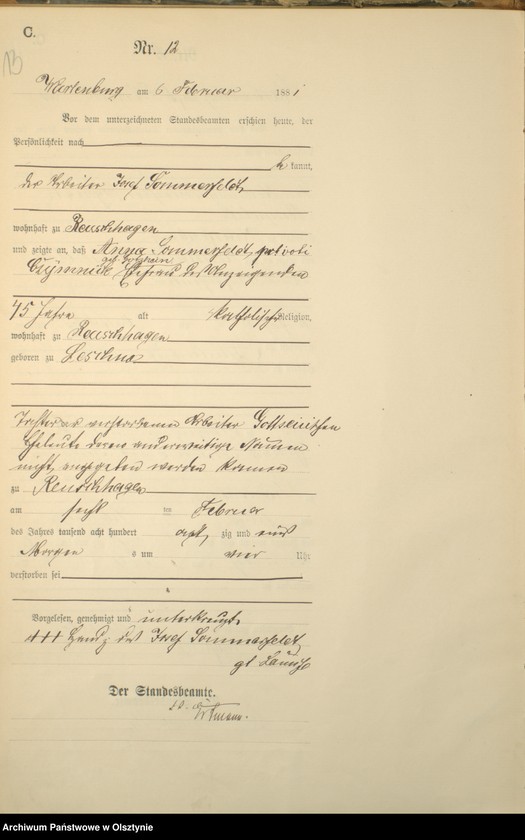 C.
Nr. 12
13
Wartenburg am 6 Februar 1881
Vor dem unterzeichneten Standesbeamten erschien heute, der
Persönlichkeit nach
be kannt,
der Arbeiter Josef Sommerfeldt
wohnhaft zu Reuschhagen
und zeigte an, daß Anna Sommerfeldt,
Ehefrau des Anzeigenden
45 Jahre alt katholischer Religion,
wohnhaft zu Reuschhagen
geboren zu
Tochter verstorbenen Arbeiter
Eheleute deren anderweitige Namen
nicht angegeben werden können
zu Reuschhagen
am sechs ten Februar
des Jahres tausend acht hundert acht zig und eins
Morgen s um vier Uhr
verstorben sei
Vorgelesen, genehmigt und unterkreuzt
+++ Handz des Josef Sommerfeldt
Der Standesbeamte.
Archiwum Państwowe w Olsztynie